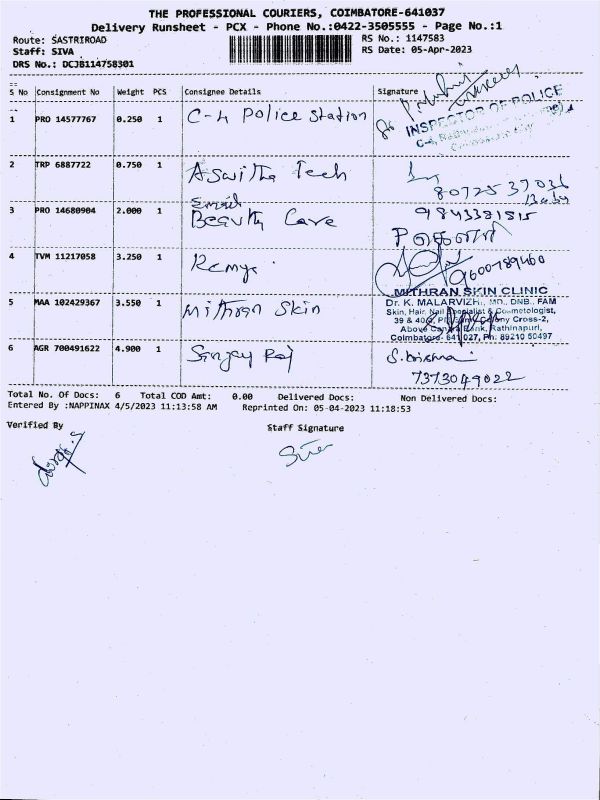 THE PROFESSIONAL COURIERS, COIMBATORE-641037
Delivery Runsheet - PCX - Phone No.:0422-3505555 - Page No.:1
Route: SASTRIROAD RS No.: 1147583
Staff: SIVA RS Date: 05-Apr-2023
DRS No.: DCJB114758301
S No Consignment No Weight PCS Consignee Details Signature
1 PRO 14577767 0.250 1 C-4 Police Station
INSPECTOR OF POLICE
2 TRP 6887722 0.750 1 Aswitha Tech
80725 37036
3 PRO 14680904 2.000 1 Email Beauty Care 9843381815
4 TVM 11217058 3.250 1 Remya 9600789460
5 MAA 102429367 3.550 1 Mithran Skin
MITHRAN SKIN CLINIC
Dr. K. MALARVIZHI, MD., DNB., FAM
Skin, Hair, Nail Specialist & Cosmetologist,
39 & 40, Colony Cross-2,
Above Canara Bank, Rathinapuri,
Coimbatore- 641 027, Ph: 89210 50497
6 AGR 700491622 4.900 1 Sanjay Raj
7373049022
Total No. Of Docs: 6 Total COD Amt: 0.00 Delivered Docs: Non Delivered Docs:
Entered By :NAPPINAX 4/5/2023 11:13:58 AM Reprinted On: 05-04-2023 11:18:53
Verified By Staff Signature